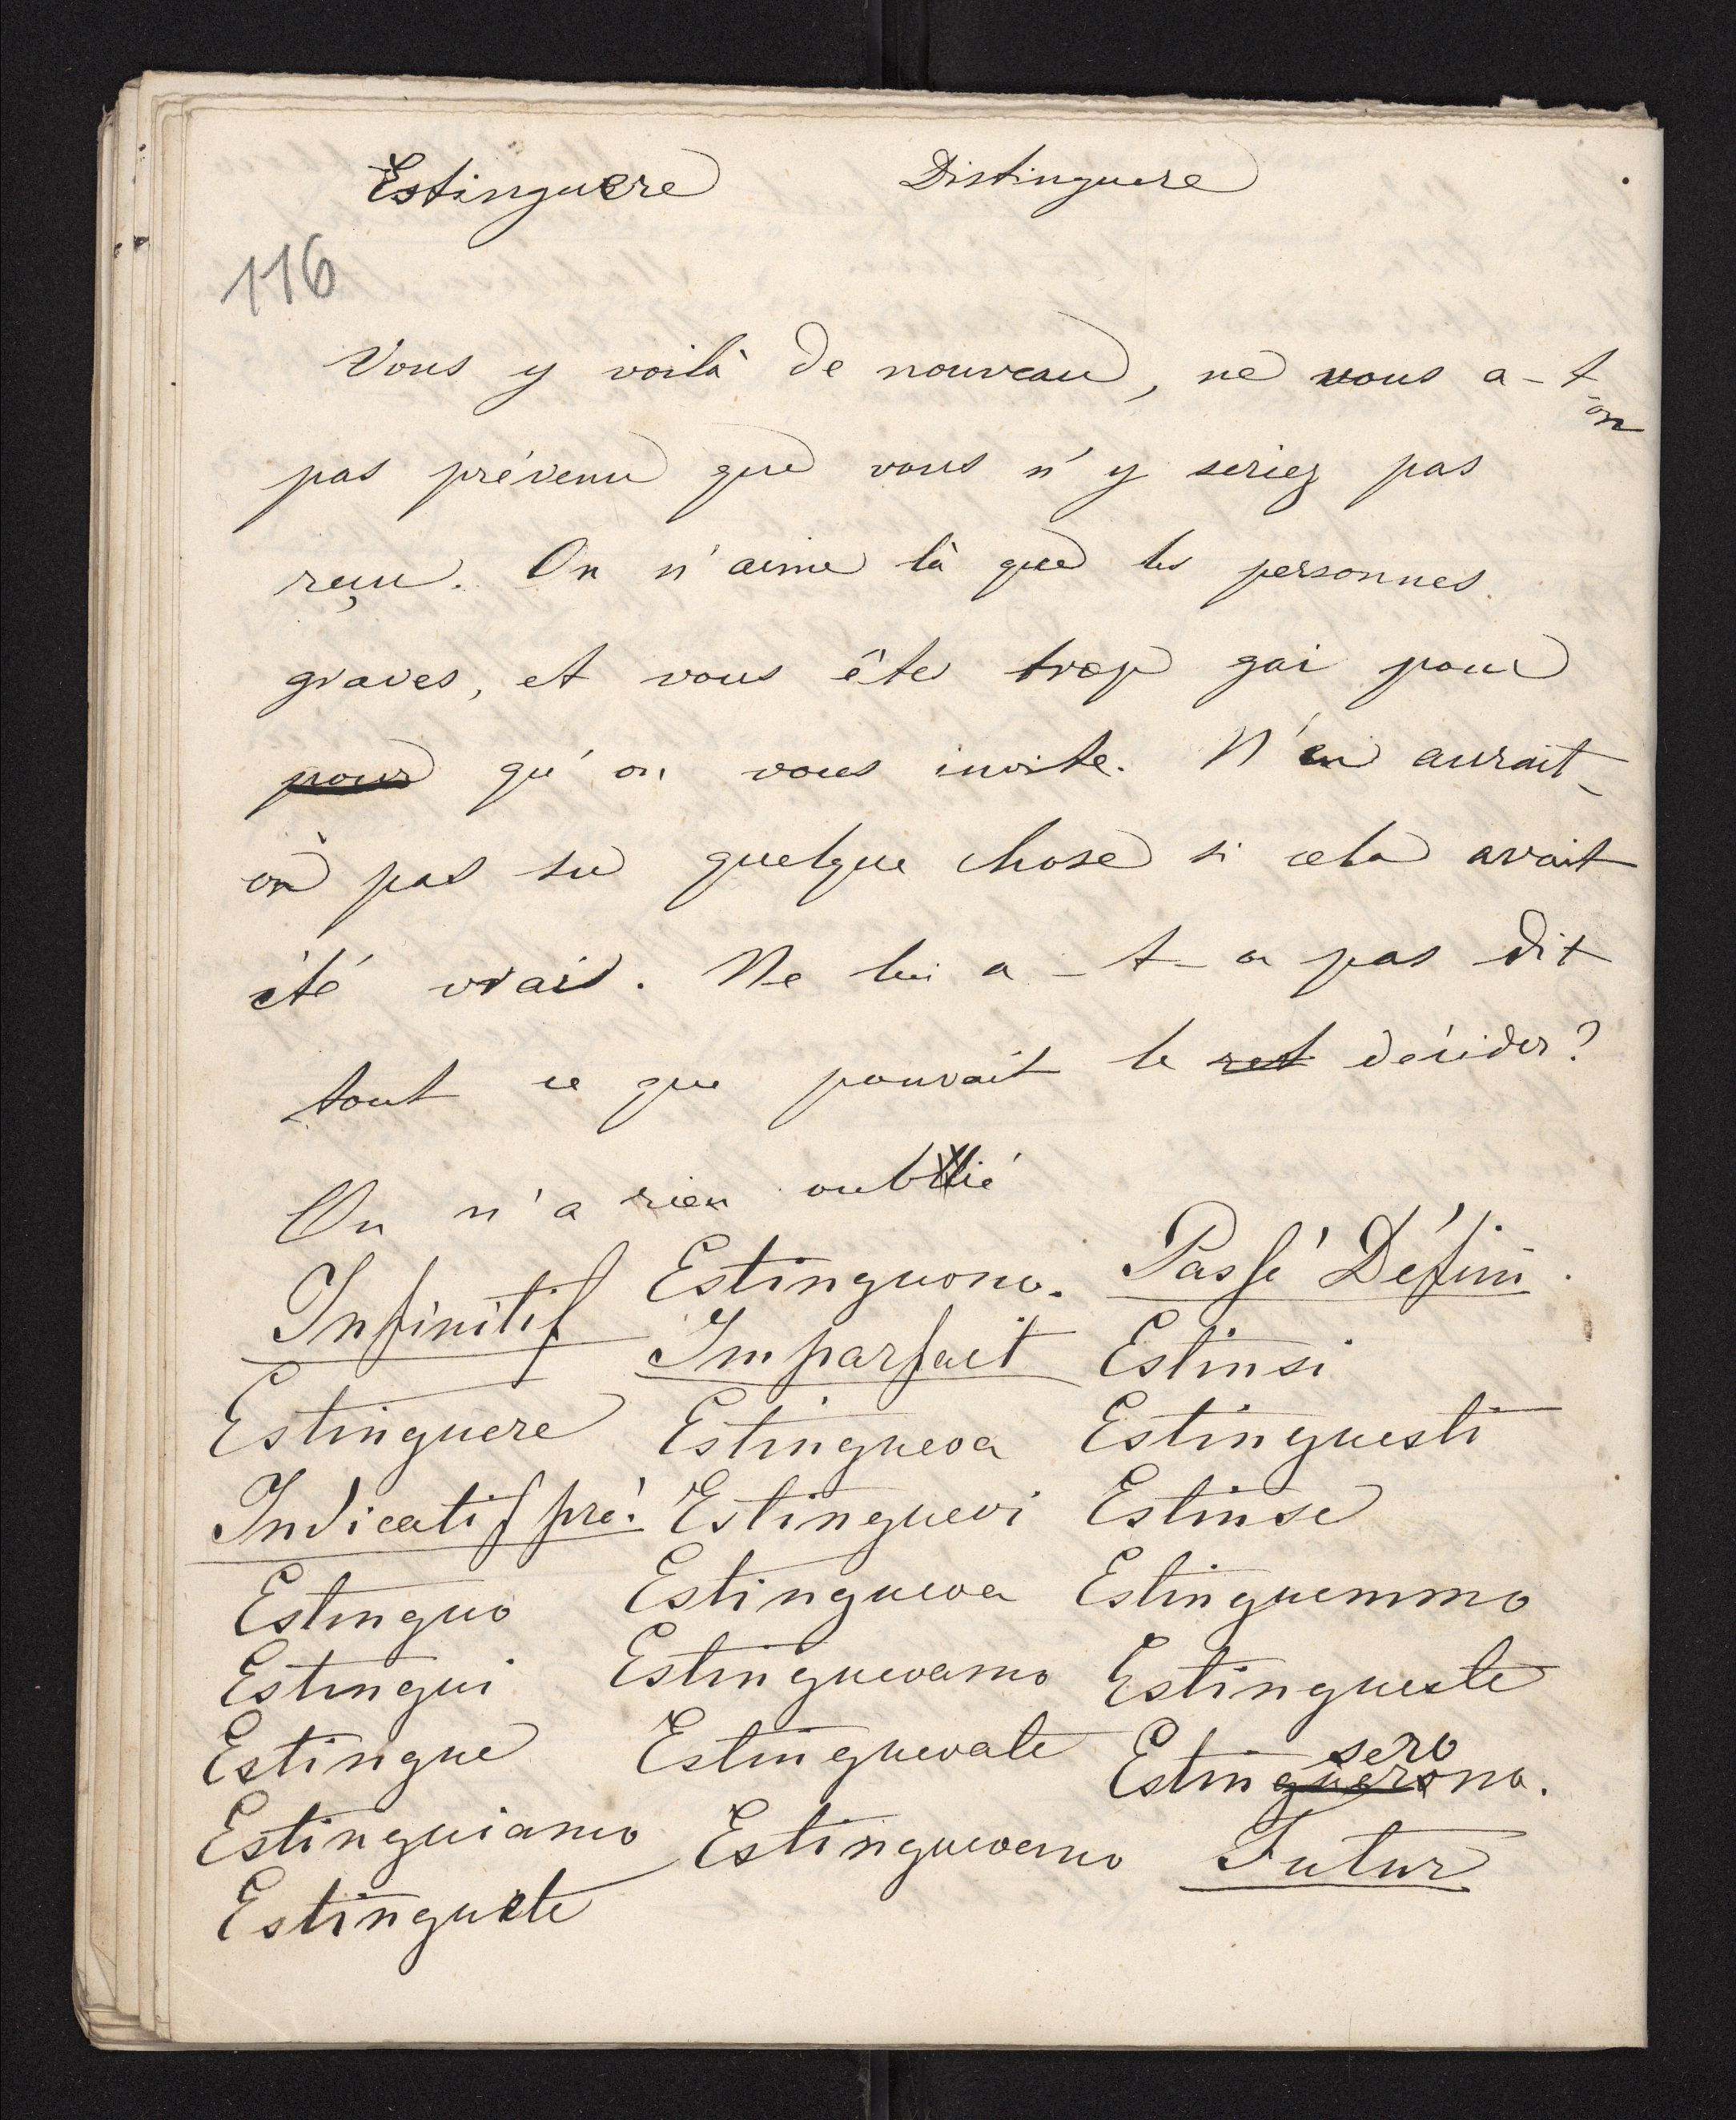 Estinguere Distinguere
116
Vous y voilà de nouveau, ne vous a-t
-on
pas prévenu que vous n'y seriez pas
reçu. On n'aime là que les personnes
graves, et vous êtes trop gai pour
pour qu'on vous invite. N'en aurait-
on pas su quelque chose si cela avait
été vrai. Ne lui a-t-on pas dit
tout ce que pouvait le decider?
On n'a rien oublié
Infinitif
Estinguere
Indicatif pré.
Estinguo
Estingui
Estingue
Estinguiamo
Estinguete
Estinguono.
Imparfait
Estingueva
Estinguevi
Estingueva
Estinguevamo
Estinguevate
Estinguevano
Passé Défini.
Estinsi
Estinguesti
Estinse
Estinguemmo
Estingueste
sero
Estinguerono.
Futur